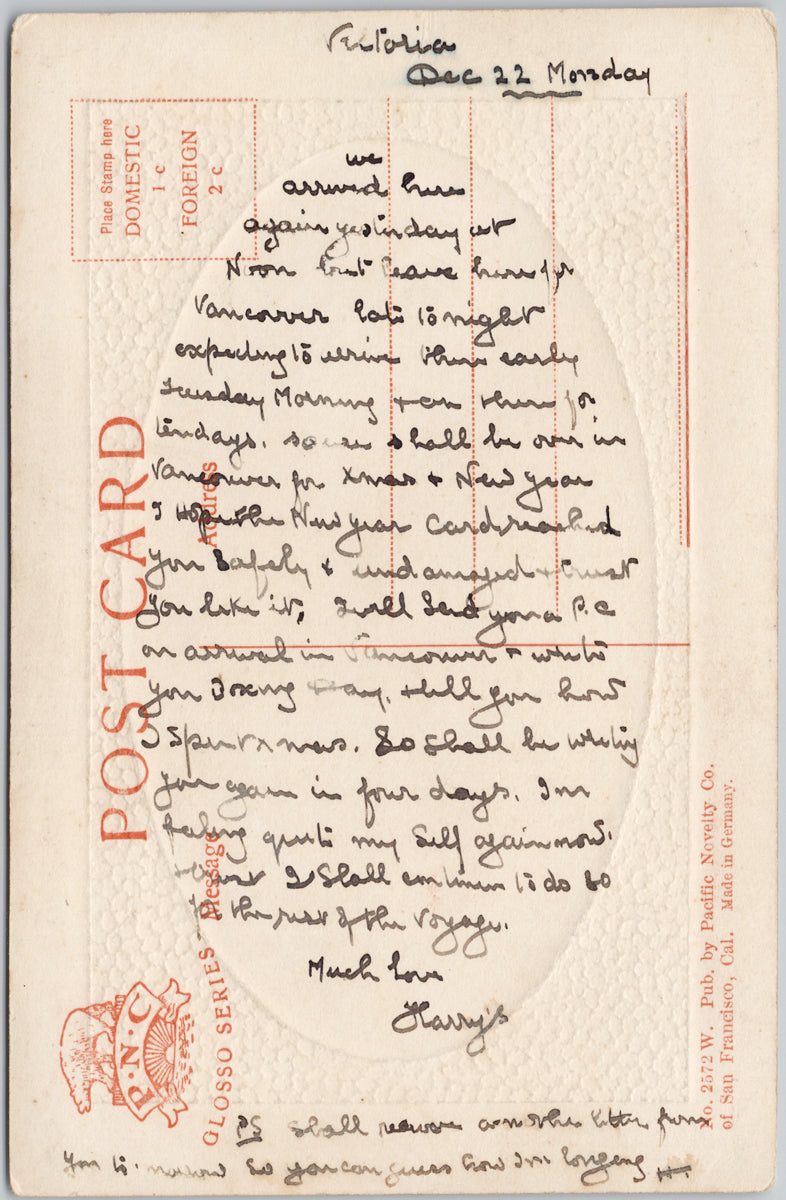 Victoria
Dec 22 Monday
we
arrived here
again yesterday at
Noon but leave here for
Vancouver late to night
expecting to arrive there early
Tuesday Morning + are there for
ten days. so we shall be over in
Vancouver for Xmas + New year
I Hope the New year Card reached
you Safely + undamaged + trust
you like it, I will Send you a P.C
on arrival in Vancouver + write
you Boxing Day. + tell you how
I Spent Xmas. So Shall be writing
you again in four days. Im
feeling quite my Self again now.
+ trust I Shall continue to do so
for the rest of the Voyage.
Much love
Harry's
PS Shall receive another letter from
you to-morrow So you can guess how Im longing H.
Place Stamp here
DOMESTIC
1 c
FOREIGN
2 c
POST CARD
Address
Message
GLOSSO SERIES
P.N.C
No. 2572 W. Pub. by Pacific Novelty Co.
of San Francisco, Cal. Made in Germany.